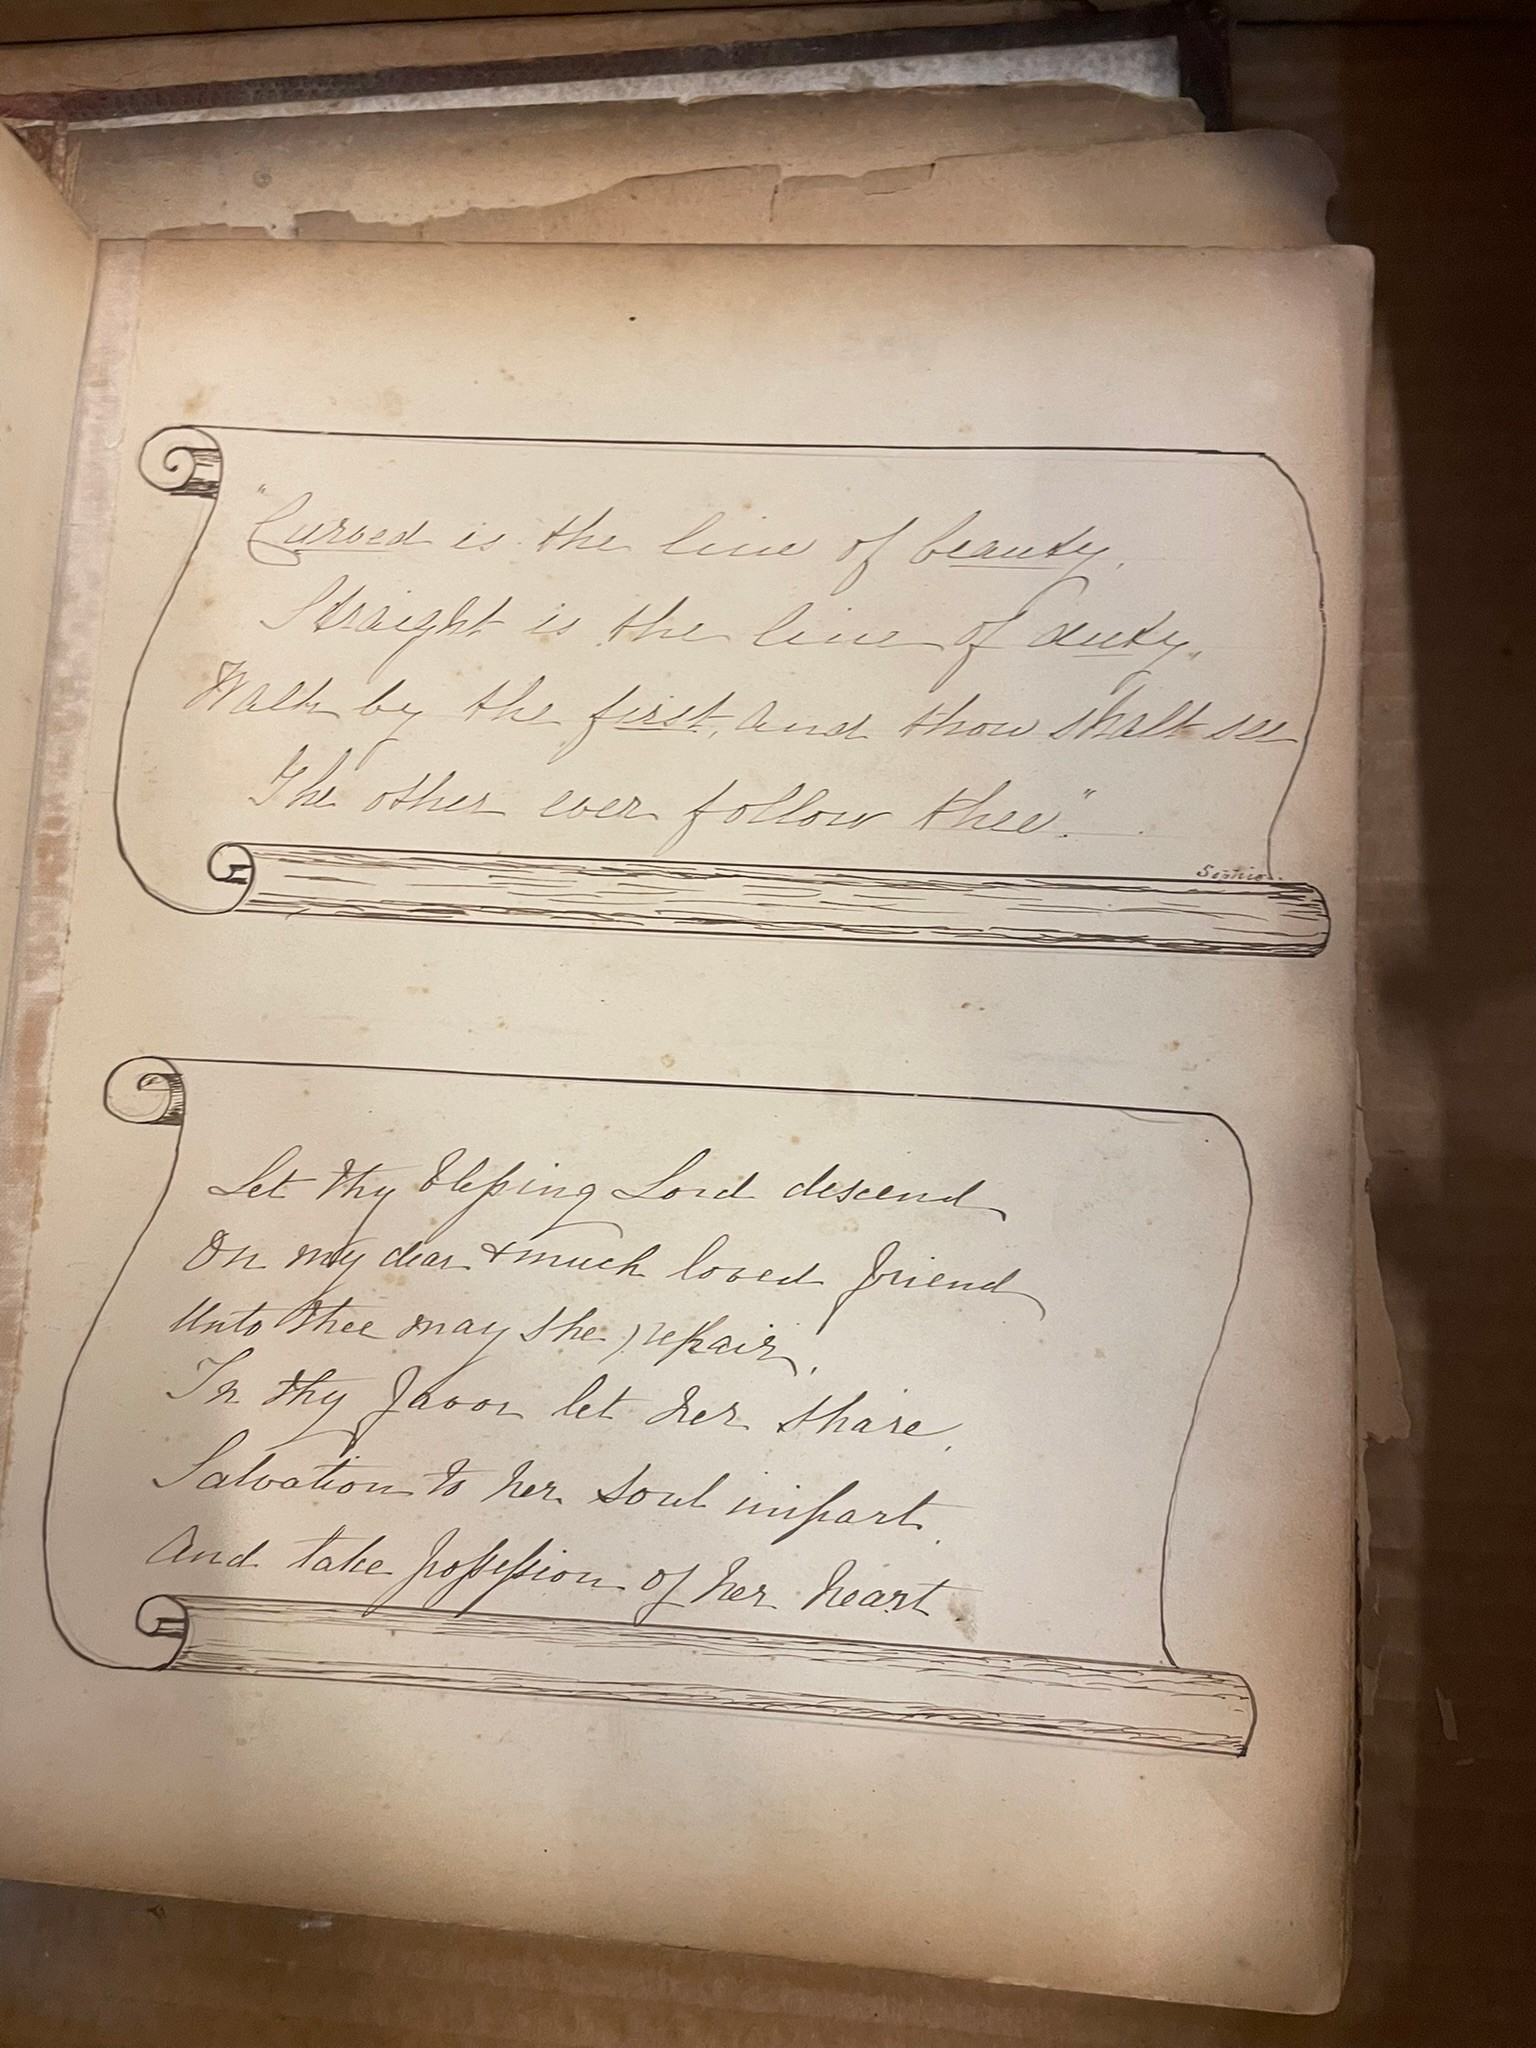 "Curved is the line of beauty,
Straight is the line of duty,
Walk by the first, and thou shalt see
The other ever follow thee".
Let thy blessing Lord descend
On my dear & much loved friend
Unto thee may she repair,
In thy favor let her share,
Salvation to her soul impart,
And take possession of her heart.